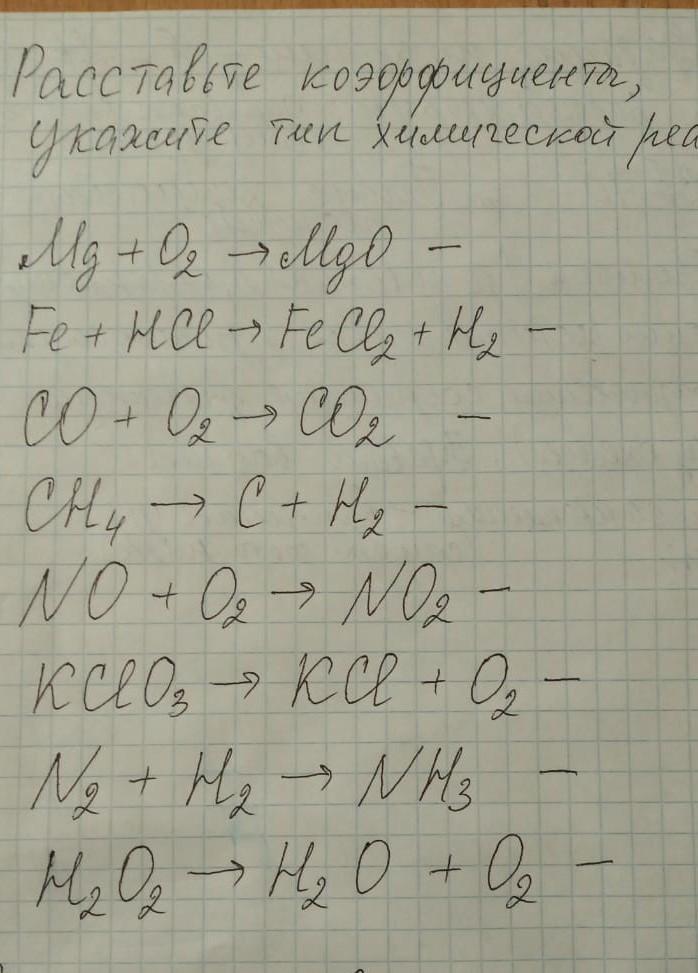 Расставьте коэффициенты,
укажите тип химической реа
Mg + O₂ → MgO –
Fe + HCl → FeCl₂ + H₂ –
CO + O₂ → CO₂ –
CH₄ → C + H₂ –
NO + O₂ → NO₂ –
KClO₃ → KCl + O₂ –
N₂ + H₂ → NH₃ –
H₂O₂ → H₂O + O₂ –